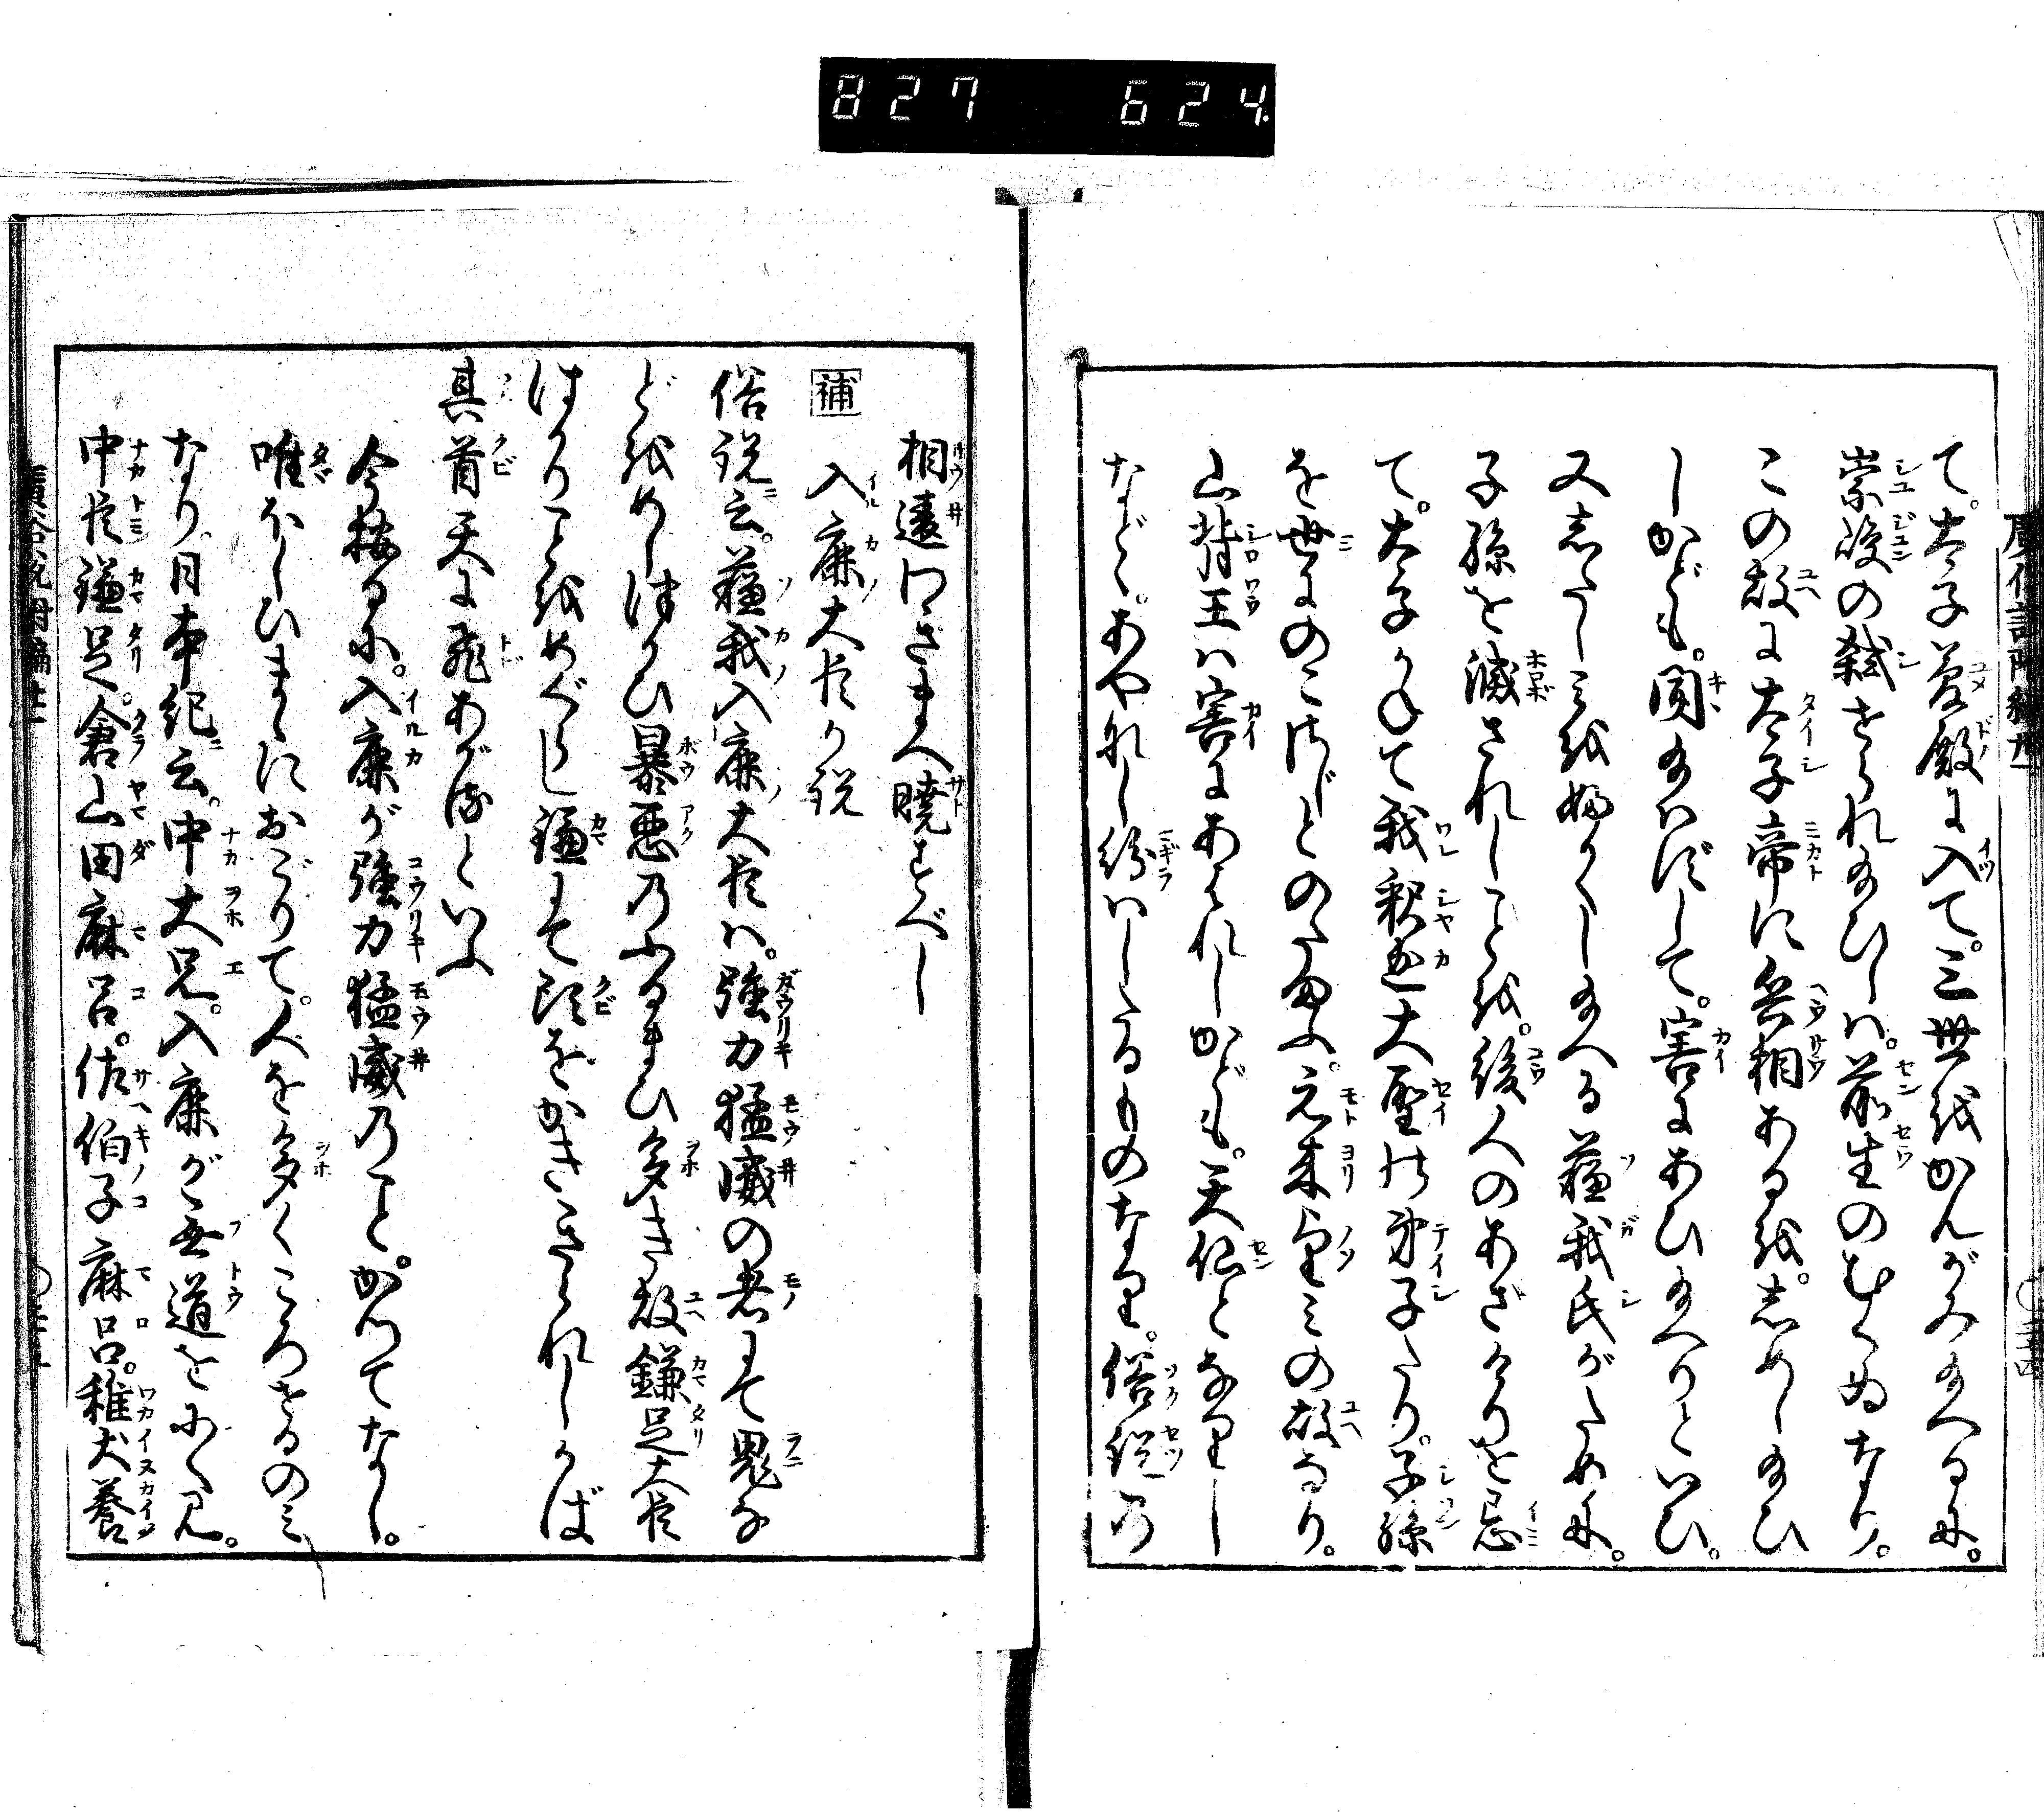 827 624
て。太子夢殿に入て。三世をかんがみ給へるに。
崇峻の弑せられ給ひしハ。前生のむくゐなり。
この故に太子帝に兵相あるを。志めし給ひ
しかども。聞給はずして。害にあひ給へりといひ。
又志たしミを婚くし給へる蘇我氏がために。
子孫を滅されしことを。後人のあざけりを忌
て。太子かねて我釈迦大聖の弟子たり。子孫
を世にのこさじとの給ふ。元来命ミの故なり。
山背王ハ害にあはれしかども。天仙となりし
などゝ。あやなし紛ハしたるものなり。俗説の
相違わきまへ暁すべし
補 入鹿大臣の説
俗説云。蘇我入鹿大臣ハ。強力猛威の者にて鬼な
どをめしつかひ暴悪乃ふるまひ多き故鎌足大臣
はかりことをめぐらし鎌にて頸をかききられしかば
其首天に飛あがるといふ
今按るに。入鹿が強力猛威乃こと。かつてなし。
唯ほしひまゝにおごりて。人を多くころせるのミ
なり。日本紀云。中大兄。入鹿が無道をにくみ。
中臣鎌足。倉山田麻呂。佐伯子麻呂。稚犬養